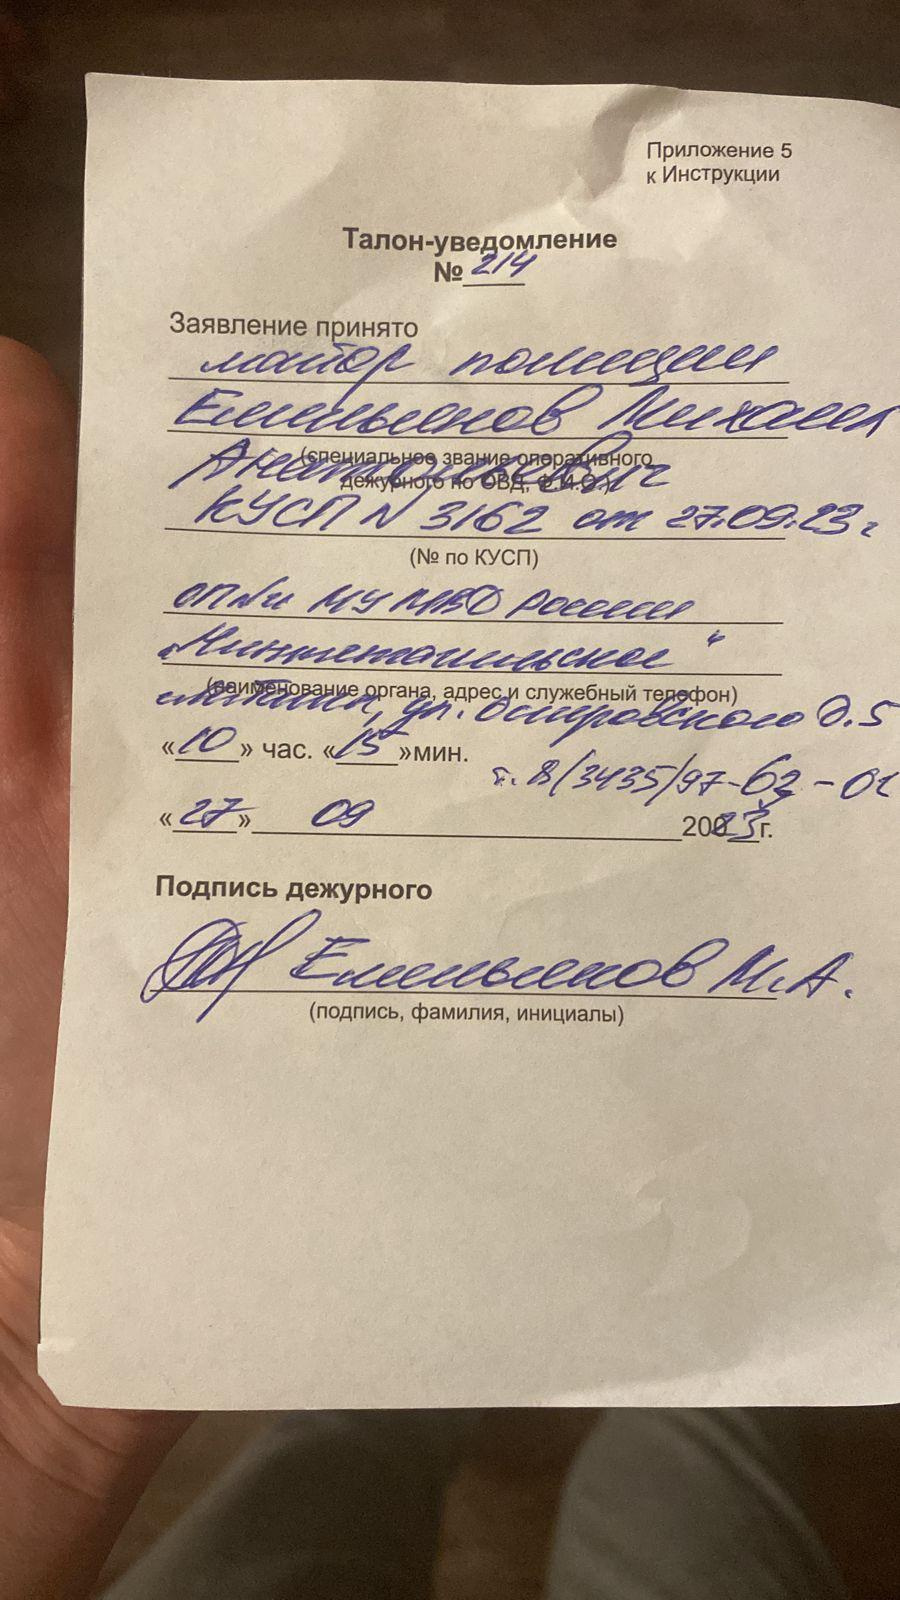 Приложение 5
к Инструкции
Талон-уведомление
№ 214
Заявление принято
майор полиции
Емельянов Михаил
Анатольевич
(специальное звание оперативного
дежурного по ОВД, Ф.И.О.)
КУСП N 3162 от 27.09.23г
(№ по КУСП)
МУ МВД России
"Нижнетагильское"
(наименование органа, адрес и служебный телефон)
ул. Островского д.5
«10» час. «15»мин.
т. 8(3435)97-62-02
«27» 09 20023г.
Подпись дежурного
Емельянов М.А.
(подпись, фамилия, инициалы)